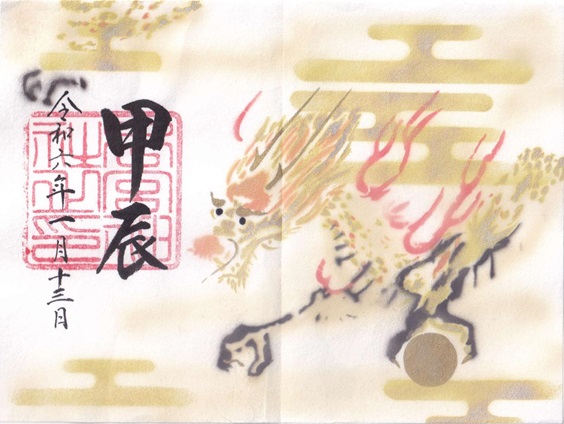 甲辰
令和六年一月十三日